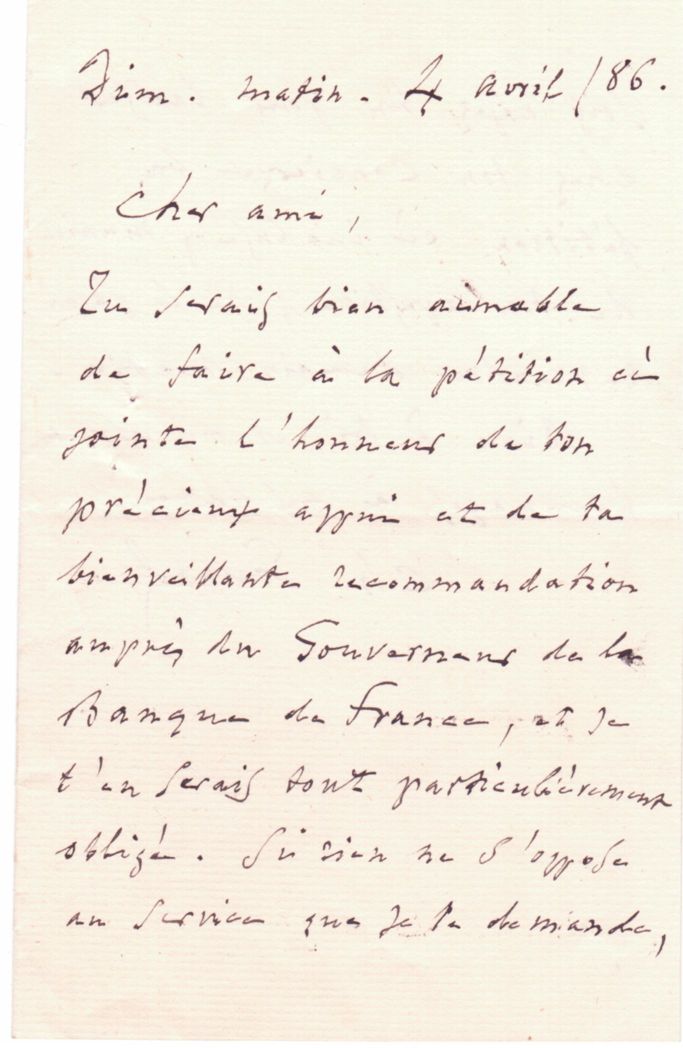 Dim. matin. 4 avril /86.
Cher ami,
Tu serais bien aimable
de faire à la pétition ci
jointe l'honneur de ton
précieux appui et de ta
bienveillante recommandation
auprès du Gouverneur de la
Banque de France, et je
t'en serais tout particulièrement
obligé. Si rien ne s'oppose
au service que je te demande,